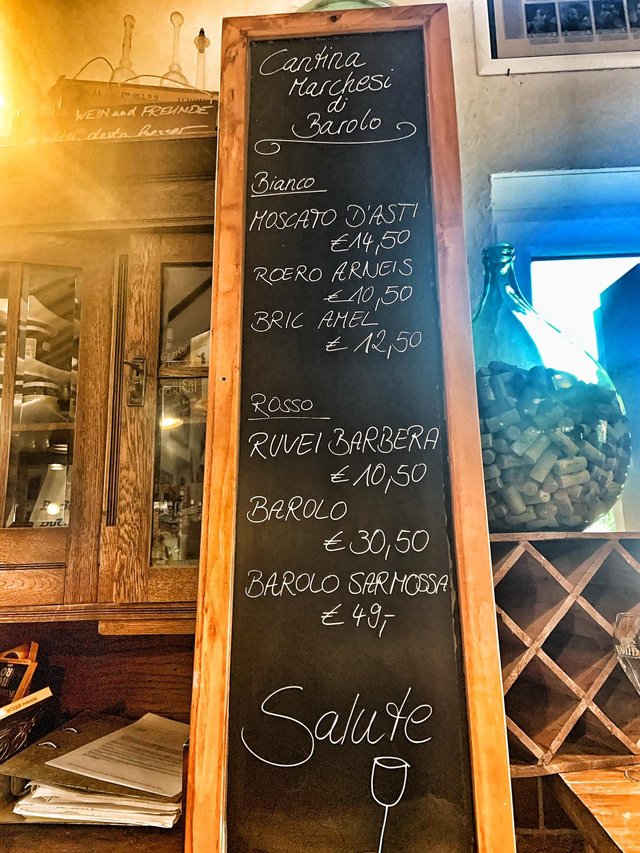 WEIN und FREUNDE
desto besser
Cantina
Marchesi
di
Barolo
Bianco
MOSCATO D'ASTI
€ 14,50
ROERO ARNEIS
€ 10,50
BRIC AMEL
€ 12,50
Rosso
RUVEI BARBERA
€ 10,50
BAROLO
€ 30,50
BAROLO SARMOSSA
€ 49,-
Salute